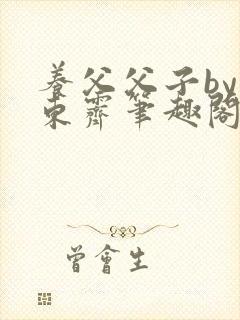 養父父子by
東霽筆趣閣
曾會生